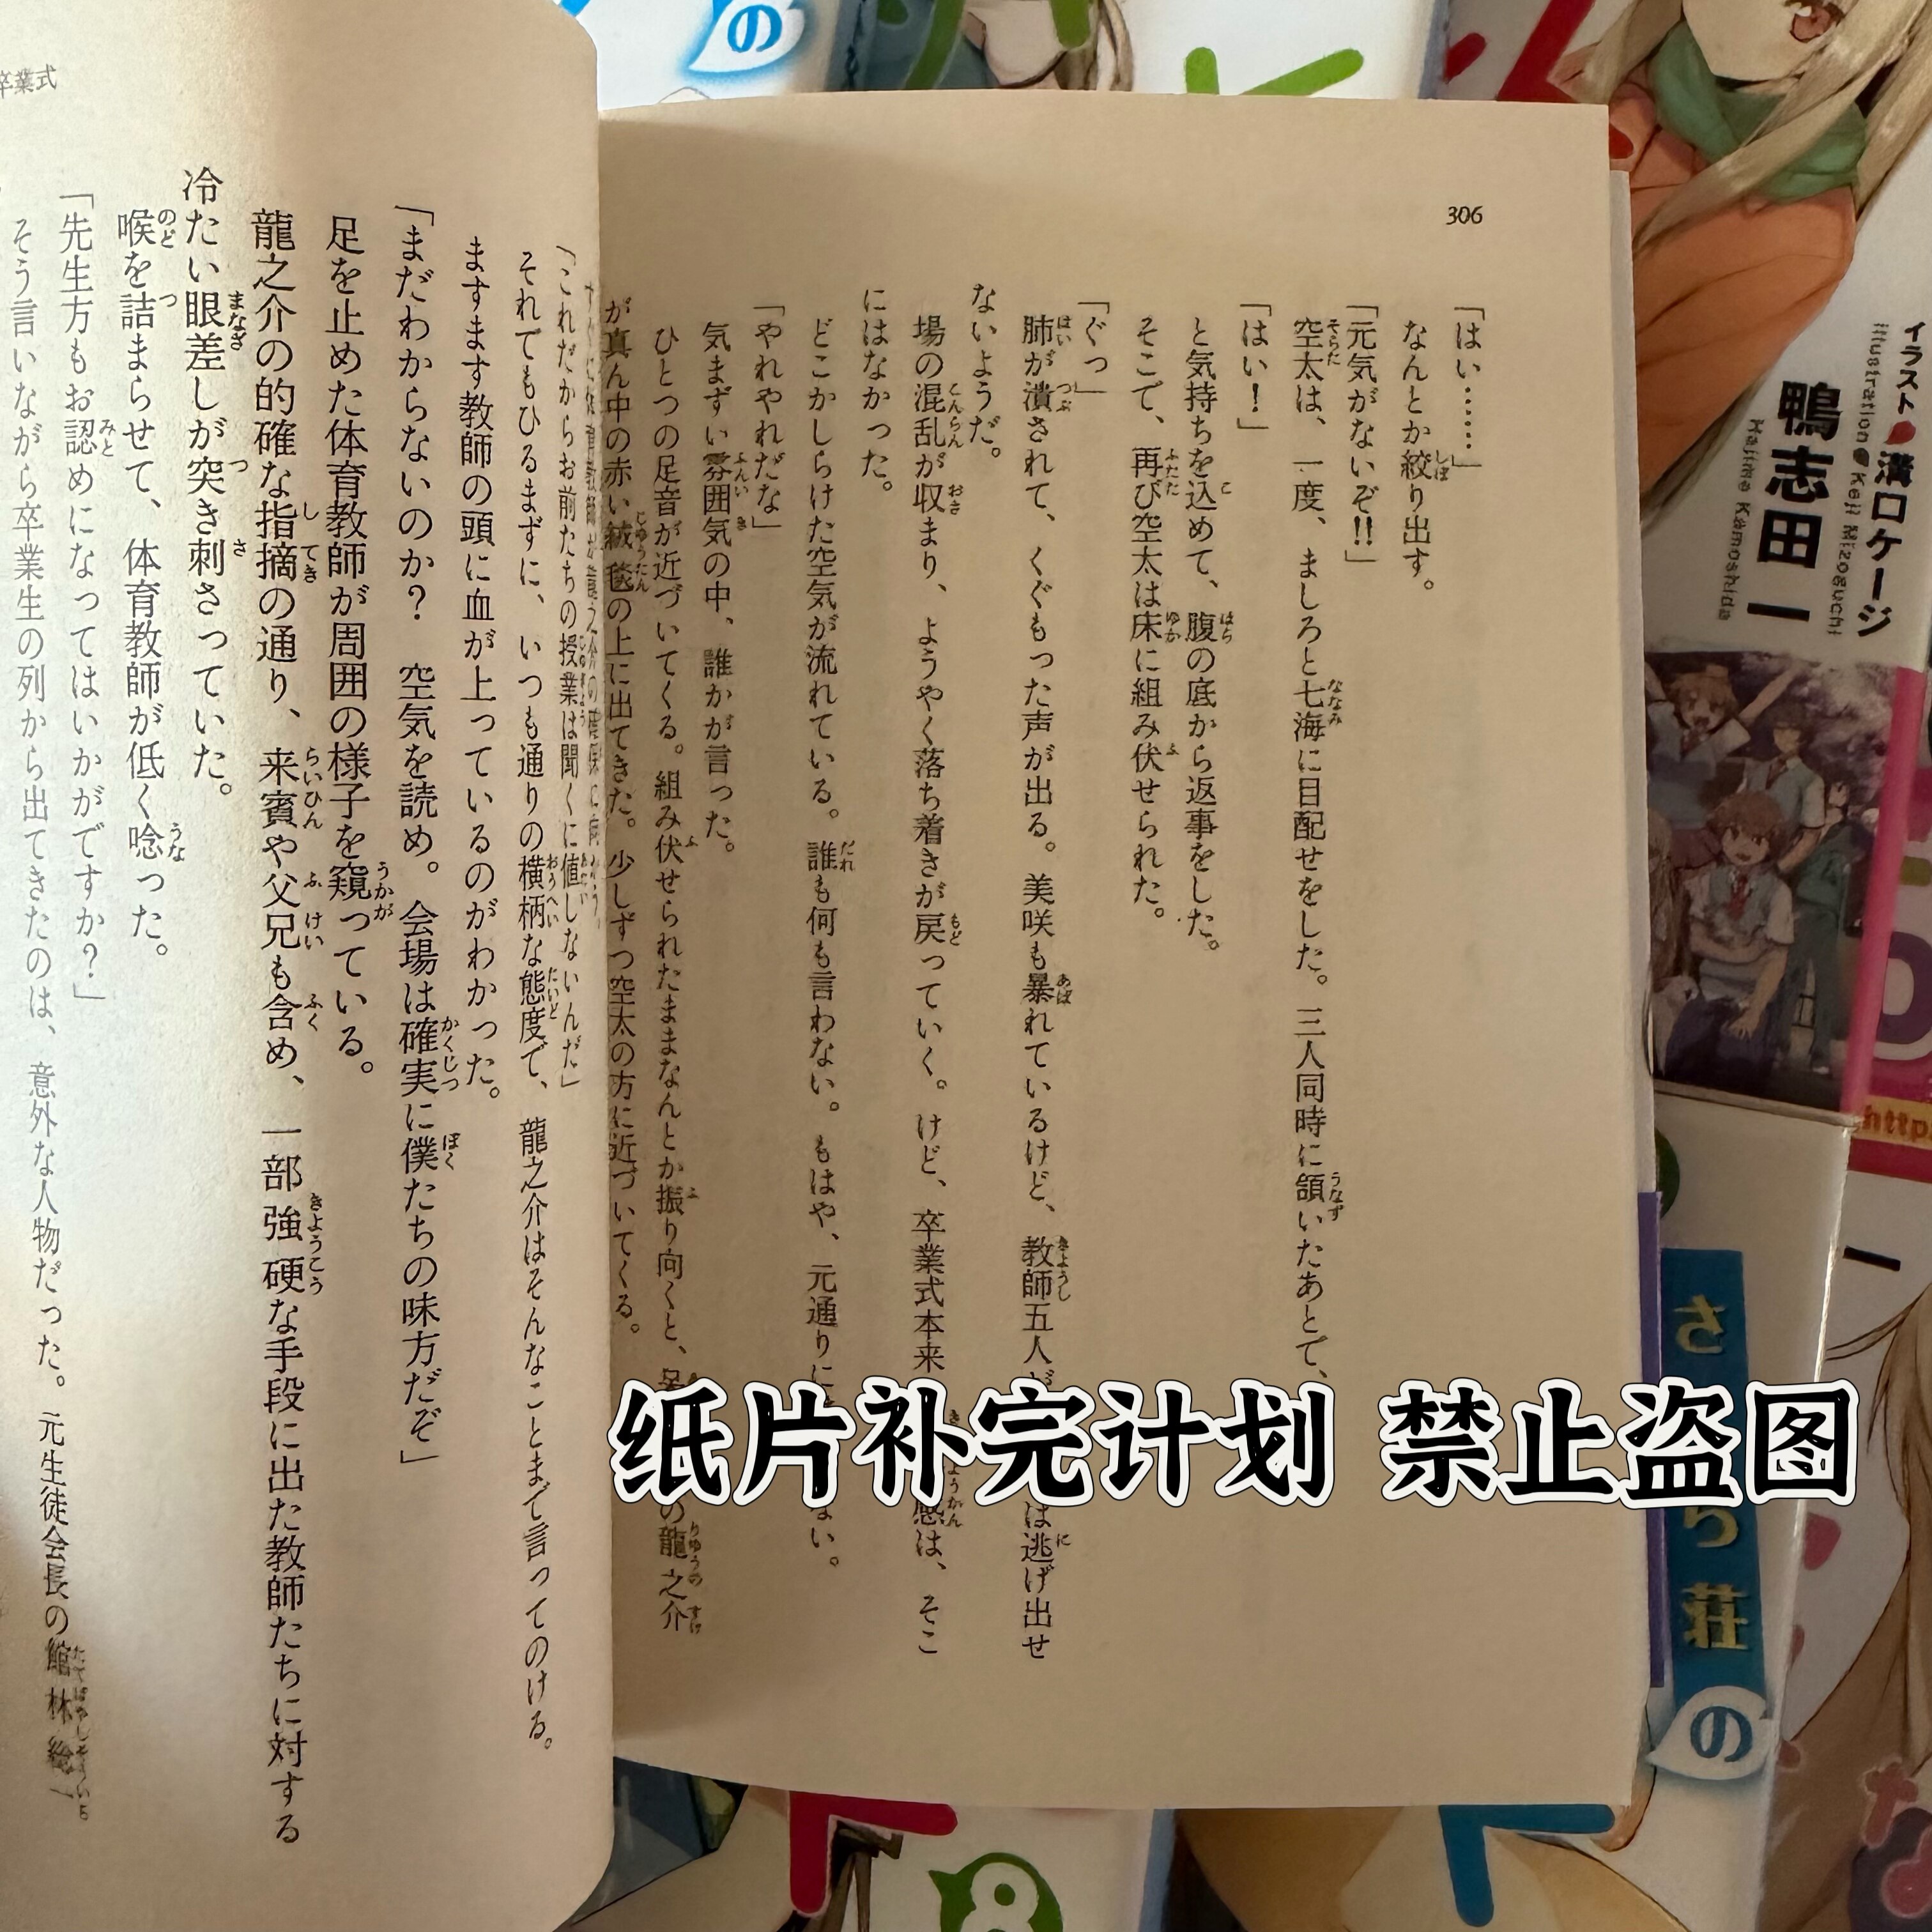 306
「はい……」
なんとか絞り出す。
「元気がないぞ!!」
空太は、一度、ましろと七海に目配せをした。三人同時に頷いたあとで、
「はい！」
と気持ちを込めて、腹の底から返事をした。
そこで、再び空太は床に組み伏せられた。
「ぐっ」
肺が潰されて、くぐもった声が出る。美咲も暴れているけど、教師五人が
は逃げ出せ
ないようだ。
場の混乱が収まり、ようやく落ち着きが戻っていく。けど、卒業式本来
感は、そこ
にはなかった。
どこかしらけた空気が流れている。誰も何も言わない。もはや、元通りに
ない。
「やれやれだな」
気まずい雰囲気の中、誰かが言った。
ひとつの足音が近づいてくる。組み伏せられたままなんとか振り向くと、
の龍之介
が真ん中の赤い絨毯の上に出てきた。少しずつ空太の方に近づいてくる。
卒業式
「これだからお前たちの授業は聞くに値しないんだ」
それでもひるまずに、いつも通りの横柄な態度で、龍之介はそんなことまで言ってのける。
ますます教師の頭に血が上っているのがわかった。
「まだわからないのか？　空気を読め。会場は確実に僕たちの味方だぞ」
足を止めた体育教師が周囲の様子を窺っている。
龍之介の的確な指摘の通り、来賓や父兄も含め、一部強硬な手段に出た教師たちに対する
冷たい眼差しが突き刺さっていた。
喉を詰まらせて、体育教師が低く唸った。
「先生方もお認めになってはいかがですか？」
そう言いながら卒業生の列から出てきたのは、意外な人物だった。元生徒会長の館林総一
纸片补完计划 禁止盗图
イラスト 溝口ケージ
illustration Keji Mizoguchi
鴨志田一
Hajime Kamoshida
http
さ
ら荘
の
の
8